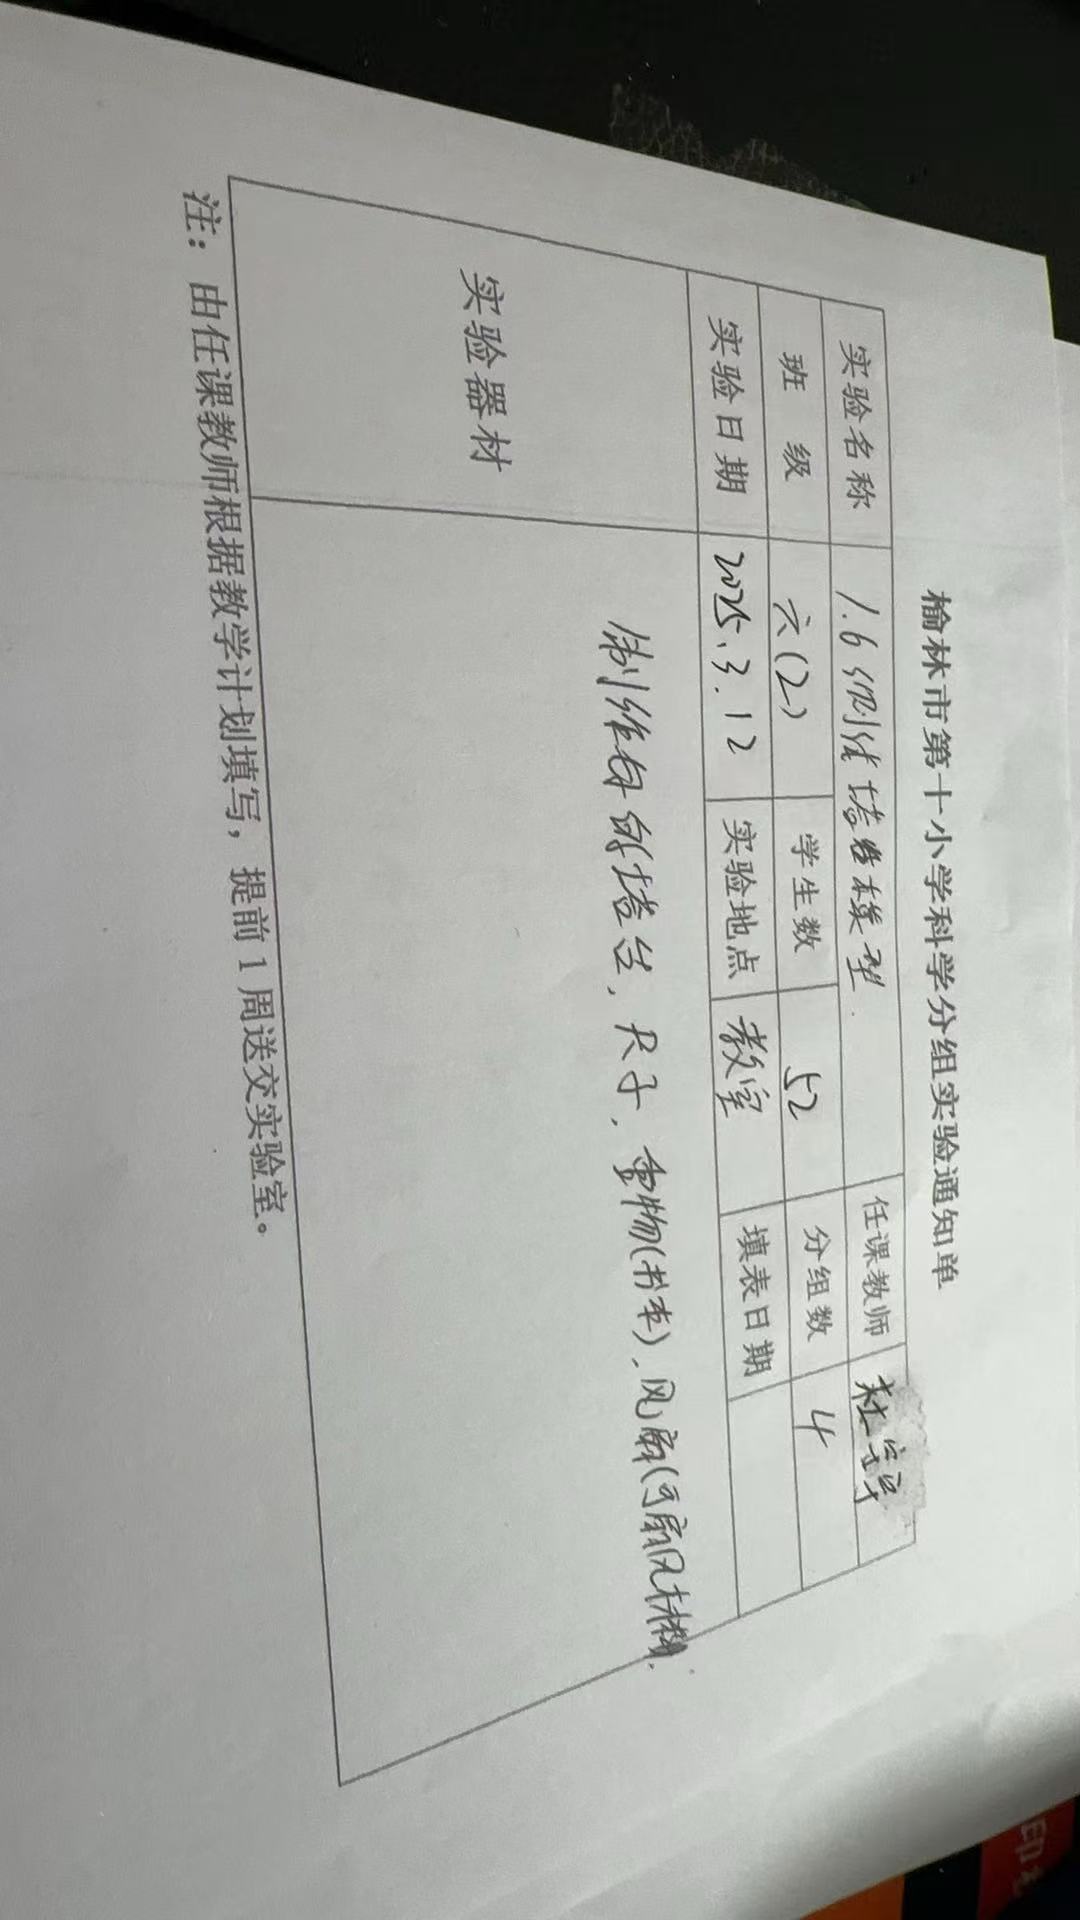 榆林市第十小学科学分组实验通知单
实验名称 1.6测试塔台模型 任课教师 杜宇
班 级 六(2) 学生数 52 分组数 4
实验日期 2025.3.12 实验地点 教室 填表日期
实验器材 制作好的塔台, 尺子, 重物(书本), 风扇(可扇风材料).
注：由任课教师根据教学计划填写，提前1周送交实验室。
印